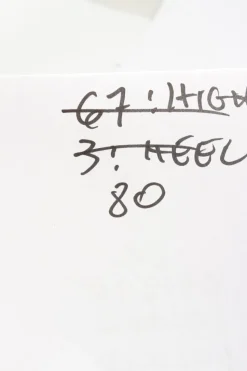 67 : HIGH
3 : HEEL
80